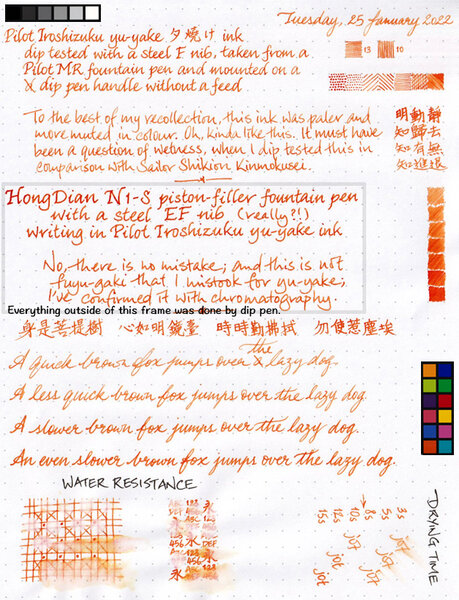 Tuesday, 25 January 2022
Pilot Iroshizuku yu-yake 夕焼け ink
dip tested with a steel F nib, taken from a
Pilot MR fountain pen and mounted on a
dip pen handle without a feed
13
10
To the best of my recollection, this ink was paler and
more muted in colour. Oh, kinda like this. It must have
been a question of wetness, when I dip tested this in
comparison with Sailor Shikiori Kinmokusei.
明動靜
知歸去
知有無
知進退
HongDian N1-S piston-filler fountain pen
with a steel EF nib (really?!)
writing in Pilot Iroshizuku yu-yake ink
No, there is no mistake; and this is not
fuyu-gaki that I mistook for yu-yake;
I've confirmed it with chromatography.
Everything outside of this frame was done by dip pen.
身是菩提樹 心如明鏡臺 時時勤拂拭 勿使惹塵埃
the
A quick brown fox jumps over lazy dog.
A less quick brown fox jumps over the lazy dog.
A slower brown fox jumps over the lazy dog.
An even slower brown fox jumps over the lazy dog.
WATER RESISTANCE
ABC 123 永
DEF 456
永 ABC 123
DEF 456
ABC 永 DEF
123 456
永 ABC 123
DEF 456
15s 12s 10s 8s 5s 3s
jot jot jot jot jot
DRYING TIME